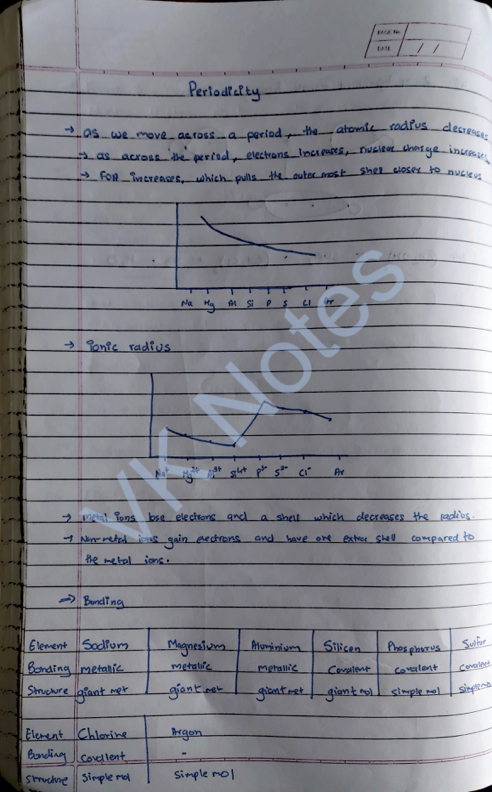 PAGE No.
DATE / /
Periodicity
→ as we move across a period, the atomic radius decreases
→ as across the period, electrons increases, nuclear charge increases,
→ FOA increases, which pulls the outer most shell closer to nucleus
Na Mg Al Si P S Cl Ar
→ ionic radius
Na⁺ Mg²⁺ Al³⁺ Si⁴⁺ P³⁻ S²⁻ Cl⁻ Ar
→ Metal ions lose electrons and a shell which decreases the radius.
→ Non-metal ions gain electrons and have one extra shell compared to
the metal ions.
⇒ Bonding
Element Sodium Magnesium Aluminium Silicon Phosphorus Sulfur
Bonding metallic metallic metallic Covalent covalent covalent
Structure giant met giant met giant met giant mol simple mol simple mo
Element Chlorine Argon
Bonding covalent -
Structure Simple mol Simple mol
VK Notes